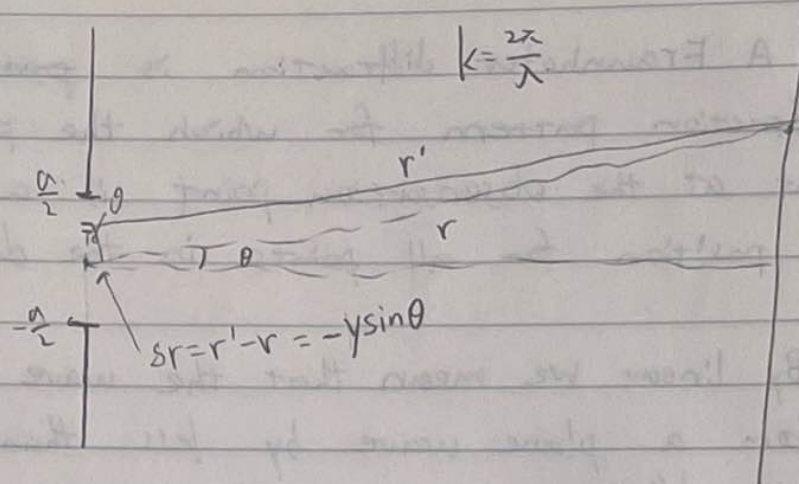 k=2π/λ
r'
a/2
θ
r
θ
-a/2
δr=r'-r=-ysinθ